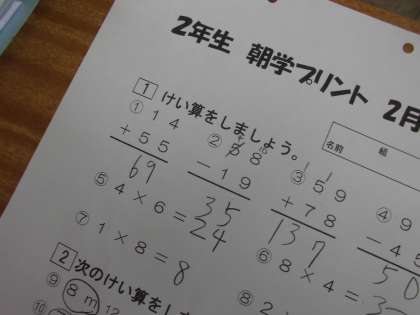 2年生 朝学プリント 2月
組
名前
1 けい算をしましょう。
① 14
+55
69
② 58
−19
35
③ 59
+78
137
④ 9
−45
50
⑤ 4×6=24
⑥ 8×4=3
⑦ 1×8=8
⑧ 2
2 次のけい算をしま
⑨ 8m
⑩